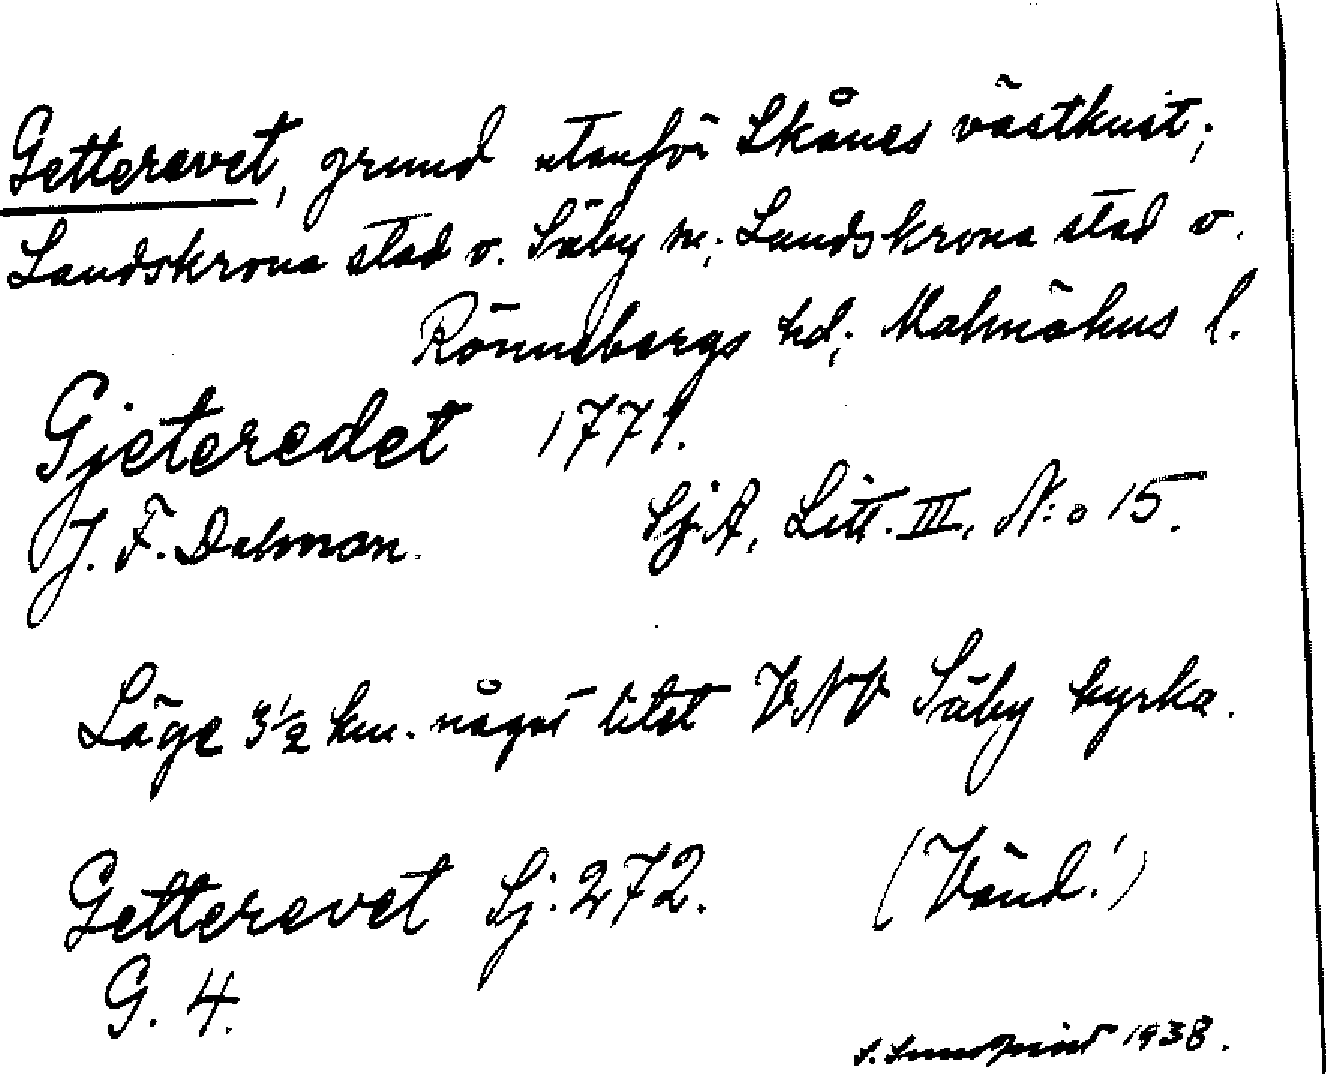 Getterevet, grund utanför Skånes västkust;
Landskrona stad o. Säby sn; Landskrona stad o.
Rönnebergs hd; Malmöhus l.
Gjeteredet 1771.
J. F. Dalman. Sj. A, Litt. III, N:o 15.
Läge 3 1/2 km. något litet VNV Säby kyrka.
Getterevet Sj. 272. (Vänd!)
G. 4.
S. Lundqvist 1938.